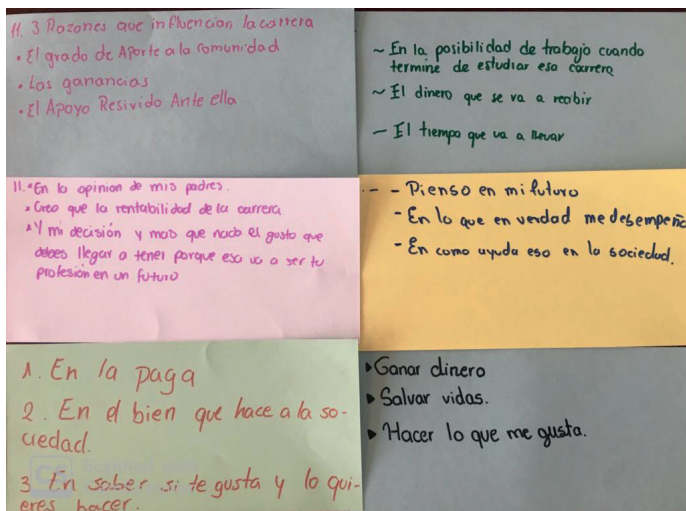 11. 3 Razones que influencian la carrera
• El grado de Aporte a la comunidad
• Las ganancias
• El Apoyo Resivido Ante ella
~ En la posibilidad de trabajo cuando
termine de estudiar esa carrera
~ El dinero que se va a recibir
- El tiempo que va a llevar
11. • En la opinion de mis padres.
• Creo que la rentabilidad de la carrera
• Y mi decisión y mas que nada el gusto que
debes llegar a tener porque esa va a ser tu
profesión en un futuro
- - Pienso en mi futuro
- En lo que en verdad me desempeño
- En como ayuda eso en la sociedad.
1. En la paga
2. En el bien que hace a la so-
ciedad.
3 En saber si te gusta y lo qui-
eres hacer.
▸ Ganar dinero
▸ Salvar vidas.
▸ Hacer lo que me gusta.
CS Scanned with